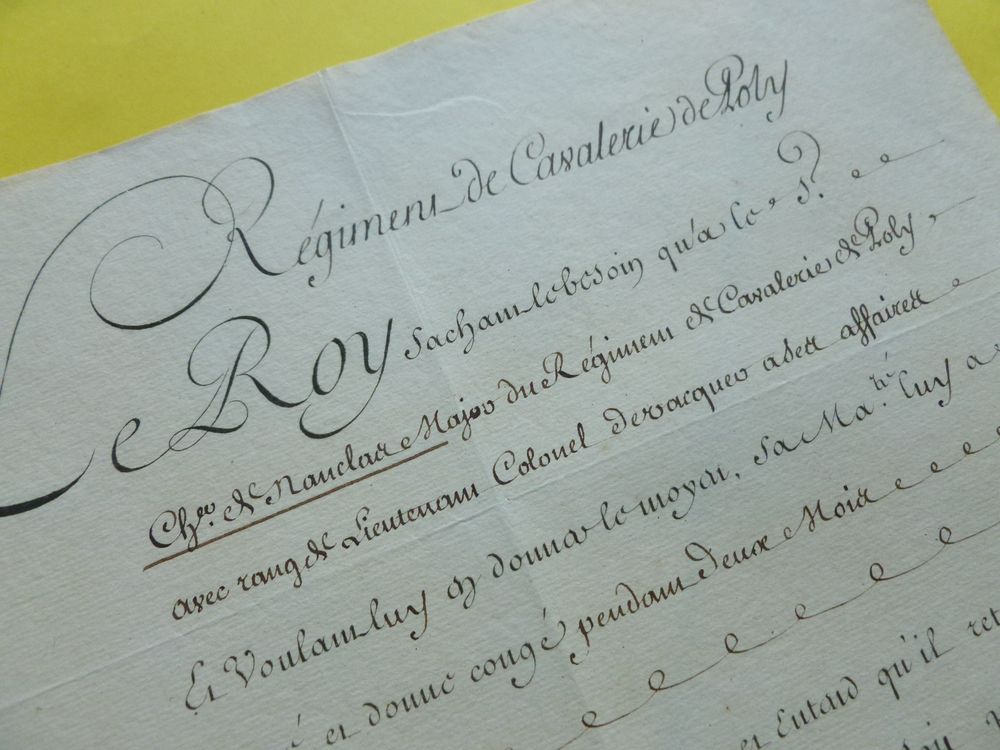 Régiment de Cavalerie de Poly
Le ROY sachant le besoin qu'a le s.r
Ch.er de Nanclas Major du Régiment de Cavalerie de Poly,
avec rang de Lieutenant Colonel de vacquer a ses affaires
Et Voulant luy en donner le moyen, Sa Ma.té luy a
et donne congé pendant deux Mois
et Entend qu'il